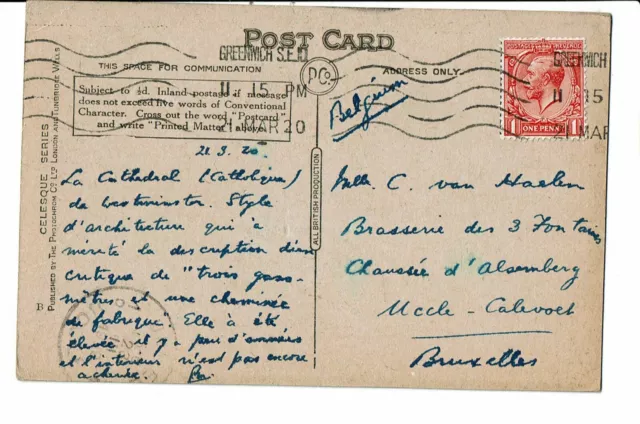 POST CARD
THIS SPACE FOR COMMUNICATION
ADDRESS ONLY.
GREENWICH S.E.10
15 PM
21 MAR 20
PCo.
GREENWICH
15
21 MAR
POSTAGE REVENUE
ONE PENNY
Subject to ½d. Inland postage if message
does not exceed five words of Conventional
Character. Cross out the word "Postcard"
and write "Printed Matter" above.
Belgium
21.3.20
La Cathedral (Catholique)
de Westminster. Style
d'architecture qui a
mérité la description d'un
critique de "trois gazo-
mètres et une cheminée
de fabrique". Elle a été
élevée il y a peu d'années
et l'intérieur n'est pas encore
achevé.
Melle. C. van Haelen
Brasserie des 3 Fontaines
Chaussée d'Alsemberg
Uccle - Calevoet
Bruxelles
CELESQUE SERIES
PUBLISHED BY THE PHOTOCHROM CO. LTD. LONDON AND TUNBRIDGE WELLS
B
ALL BRITISH PRODUCTION